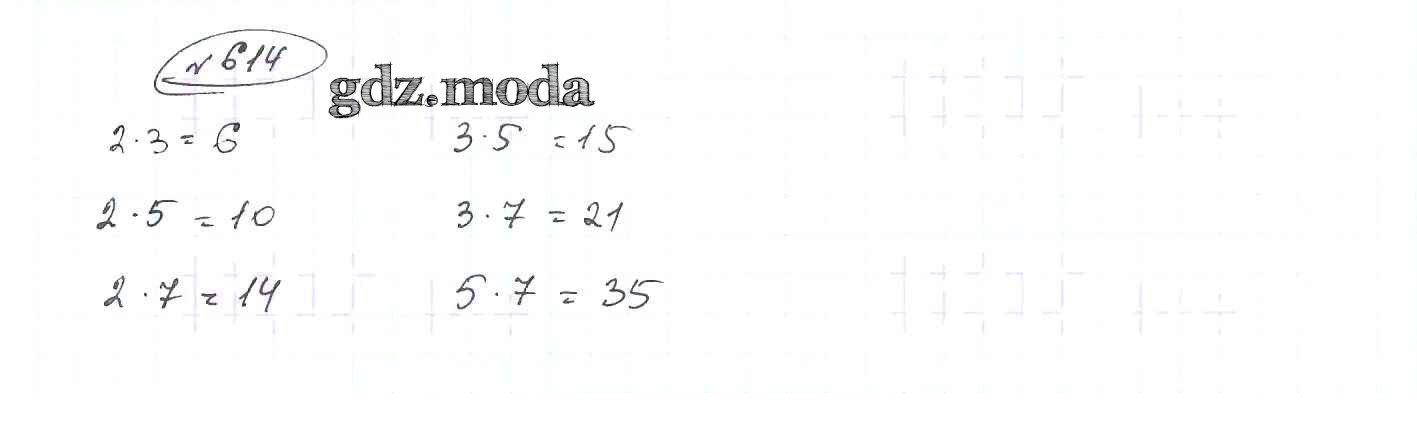 № 614
gdz.moda
2·3 = 6
3·5 = 15
2·5 = 10
3·7 = 21
2·7 = 14
5·7 = 35